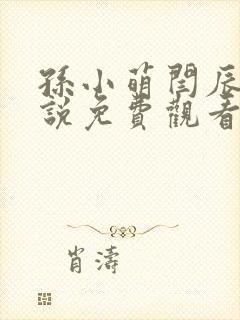 孫小萌閆辰
說免費觀看
肖濤